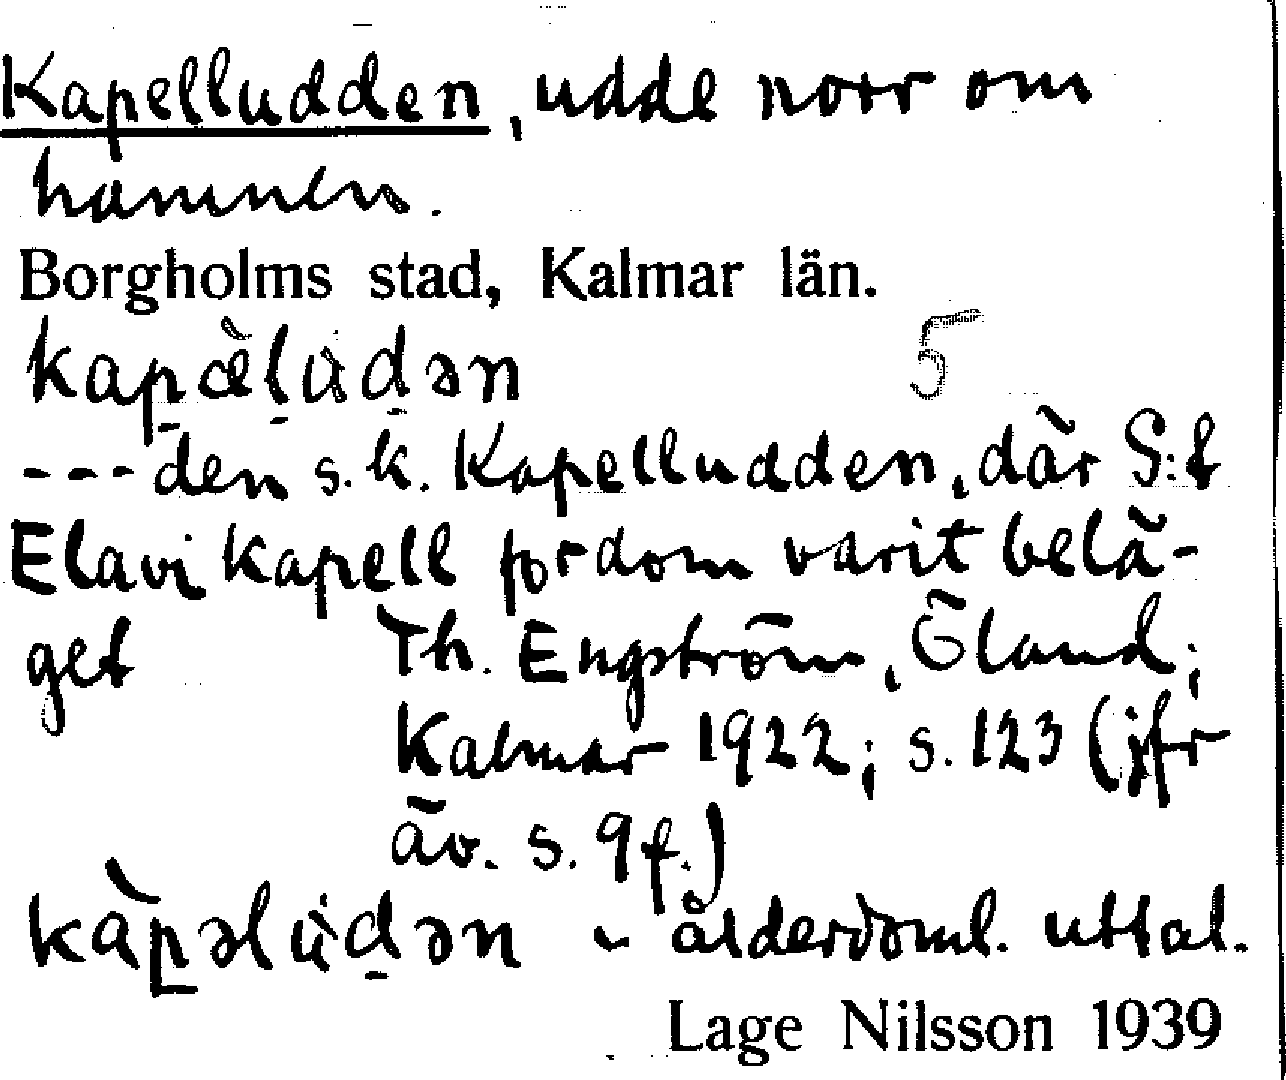 Kapelludden, udde norr om
hamnen.
Borgholms stad, Kalmar län.
kapæ̀lùdən 5
--- den s.k. Kapelludden, där S:t
Elavi kapell fordom varit belä-
get Th. Engström, Öland;
Kalmar 1922; s. 123 (jfr
äv. s. 9 f.)
kàpəlùdən - ålderdoml. uttal.
Lage Nilsson 1939